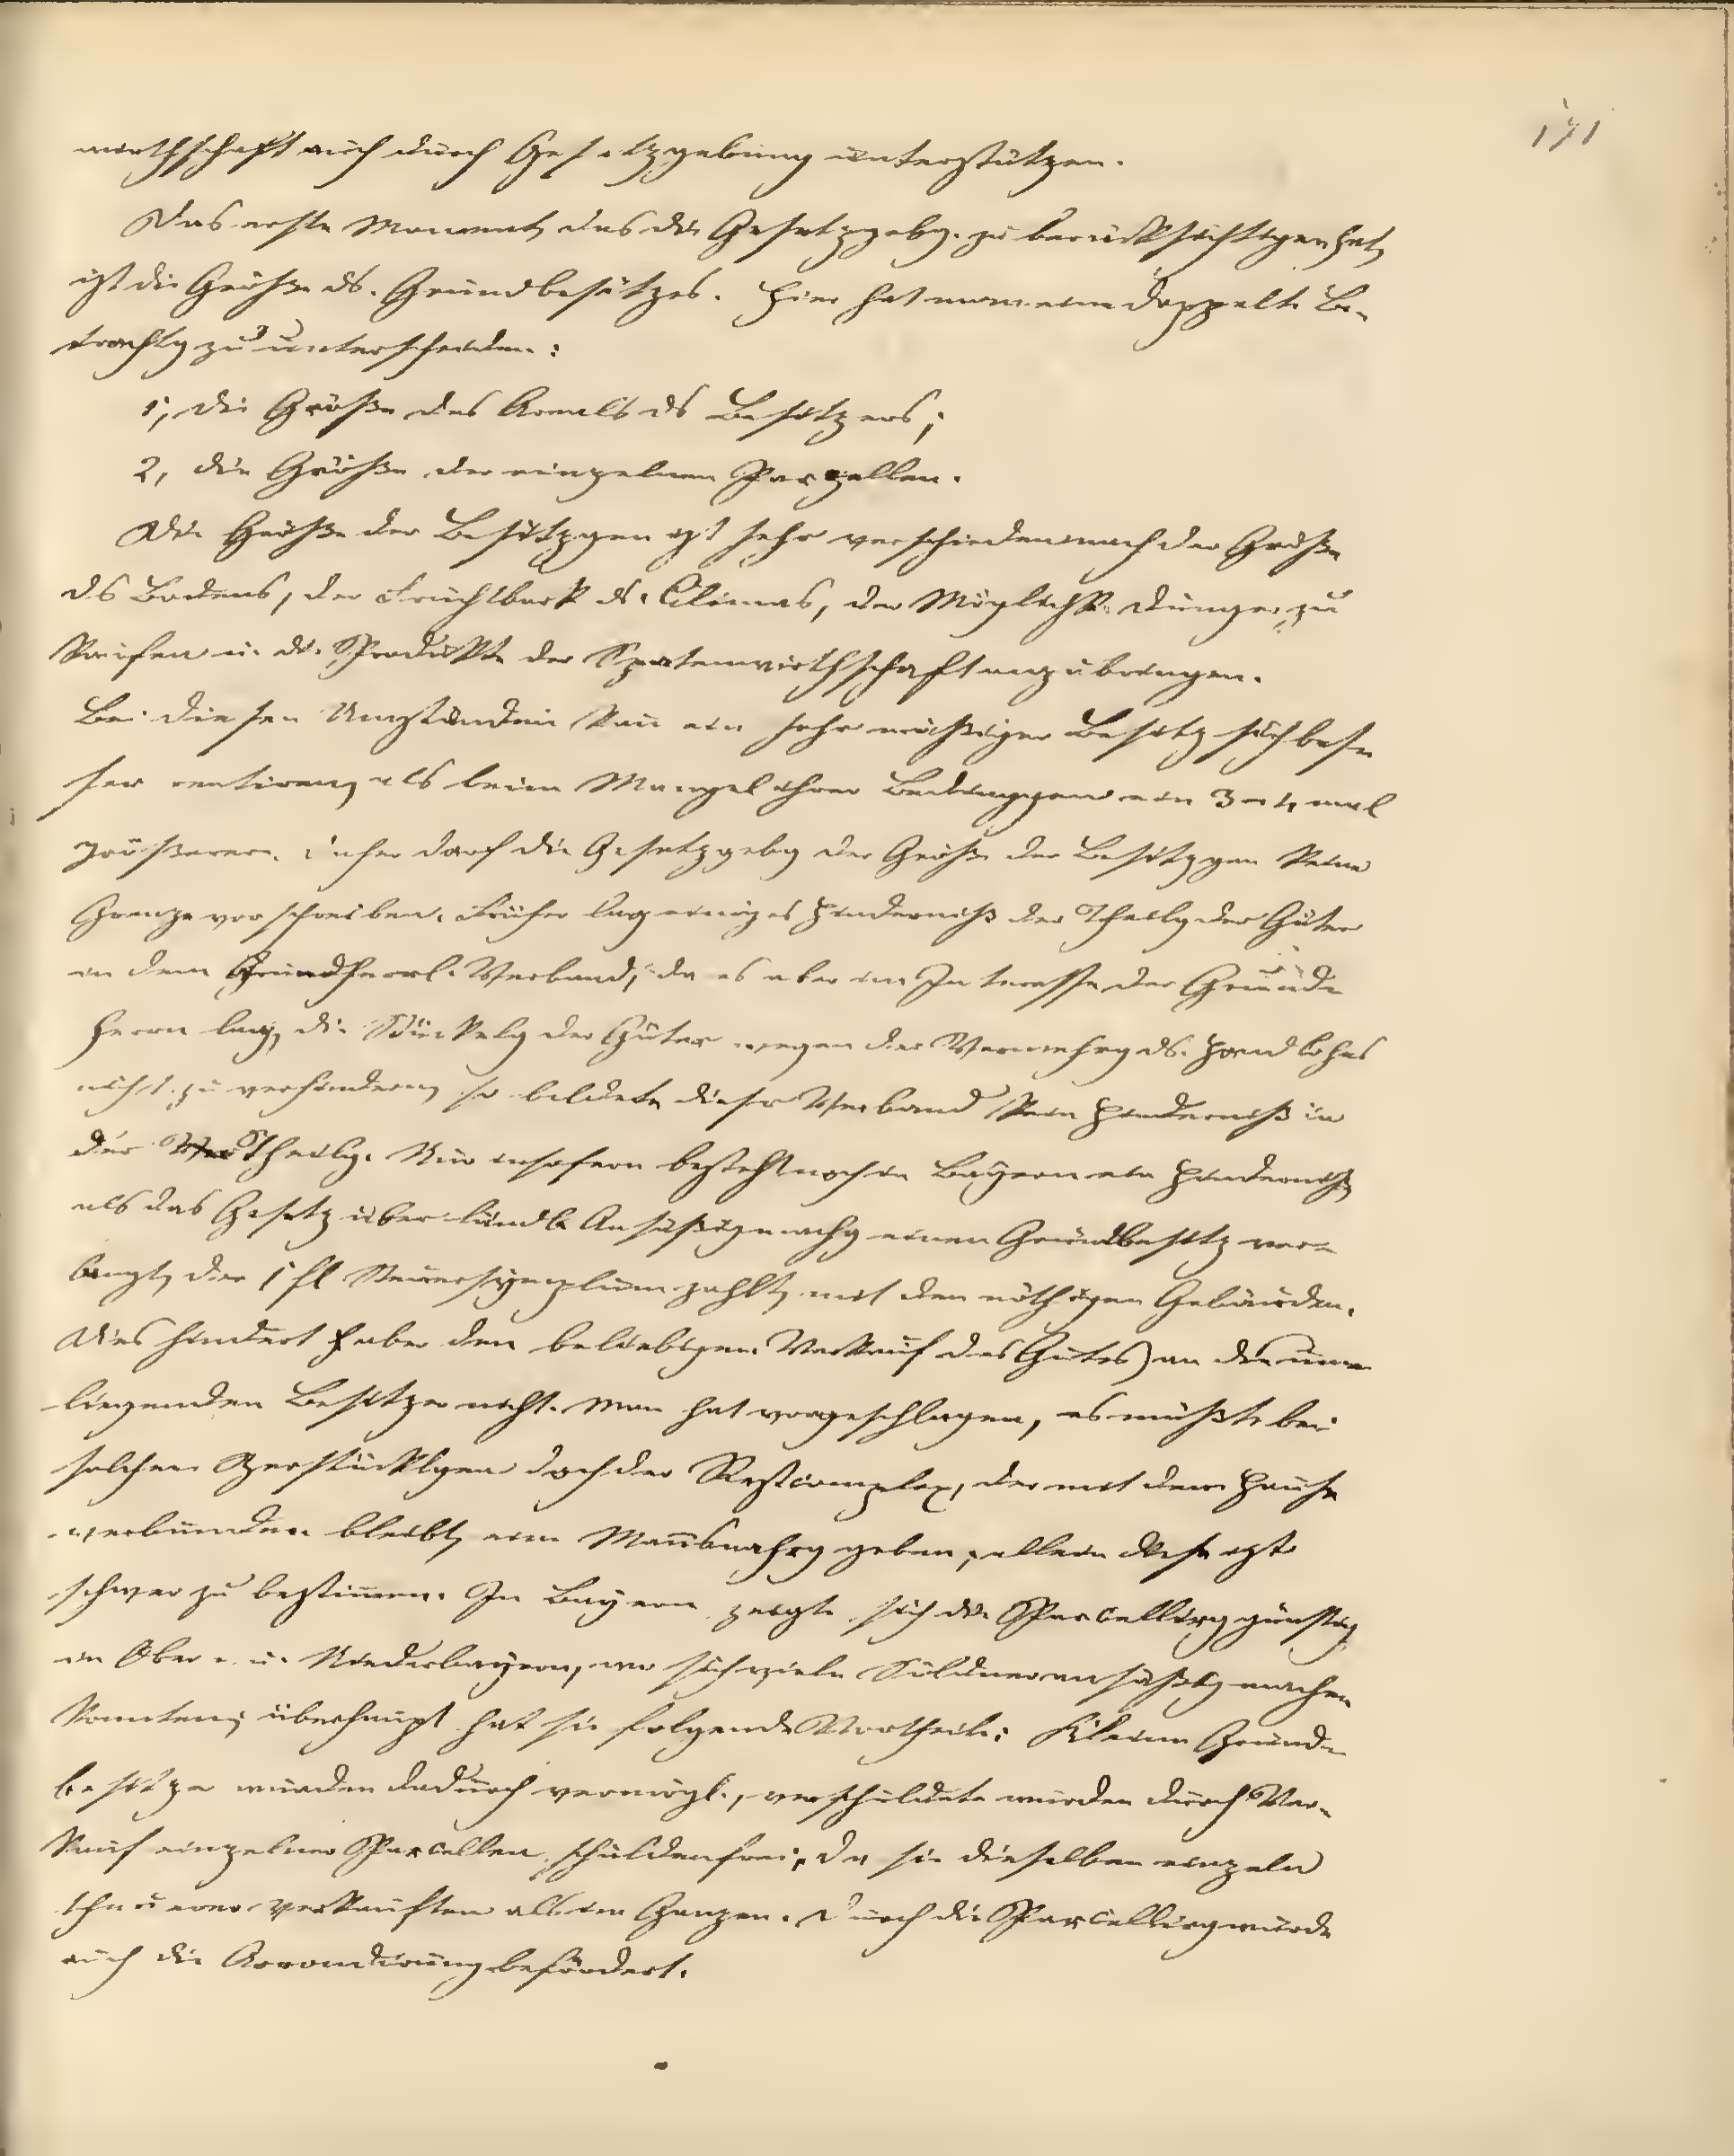 171
wirthschaft auch durch Gesetzgebung unterstützen.
Das erste Moment, das die Gesetzgebg. zu berücksichtigen hat,
ist die Größe ds. Grundbesitzes. Hier hat man eine doppelte Be-
trachtg zu unterscheiden:
1, die Größe des Areals ds Besitzers;
2, die Größe der einzelnen Parzellen.
Die Größe der Besitzgen ist sehr verschieden nach der Größe
ds Bodens, der Fruchtbark. ds. Climas, der Möglichk. Dünger zu
kaufen u. die Produkte der Spatenwirthschaft anzubringen.
Bei diesen Umständen kañ ein sehr mäßiger Besitz sich bes-
ser rentiren, als beim Mangel ihrer Bedinggen ein 3-4 mal
größerer. Daher darf die Gesetzgebg der Größe der Besitzgen keine
Grenze vorschreiben. Früher lag einiges Hinderniß der Theilg der Güter
in dem Grundherrl. Verband, da es aber im Interesse der Grund-
herrn lag, die Stückelg der Güter wegen der Vermehrg ds. Handlohns
nicht zu verhindern, so bildete dieser Verband kein Hinderniß in
der Theilg. Nur insofern besteht noch in Bayern ein Hinderniß,
als das Gesetz über ländl. Ansäßigmachg einen Grundbesitz ver-
langt, der 1 fl Steuersimplum zahlt, mit den nöthigen Gebäuden.
Dies hindert aber den beliebigen Verkauf des Gutes) an die um-
liegenden Besitzer nicht. Man hat vorgeschlagen, es müßte bei
solchen Zerstücklgen doch der Restcomplex, der mit dem Hause
verbunden bleibt, eine Mañsnahrg geben, allein diese ist
schwer zu bestiṁen. In Bayern zeigte sich die Parcellirg günstig
in Ober- u. Niederbayern, wo sich viele Söldner ansäßig machen
konnten; überhaupt hat sie folgende Vortheile: Kleine Grund-
besitzer wurden dadurch vermögl., verschuldete wurden durch Ver-
kauf einzelner Parcellen schuldenfrei, da sie dieselben einzeln
theuerer verkauften als im Ganzen. Durch die Parcellirg wurde
auch die Arrondirung befördert.